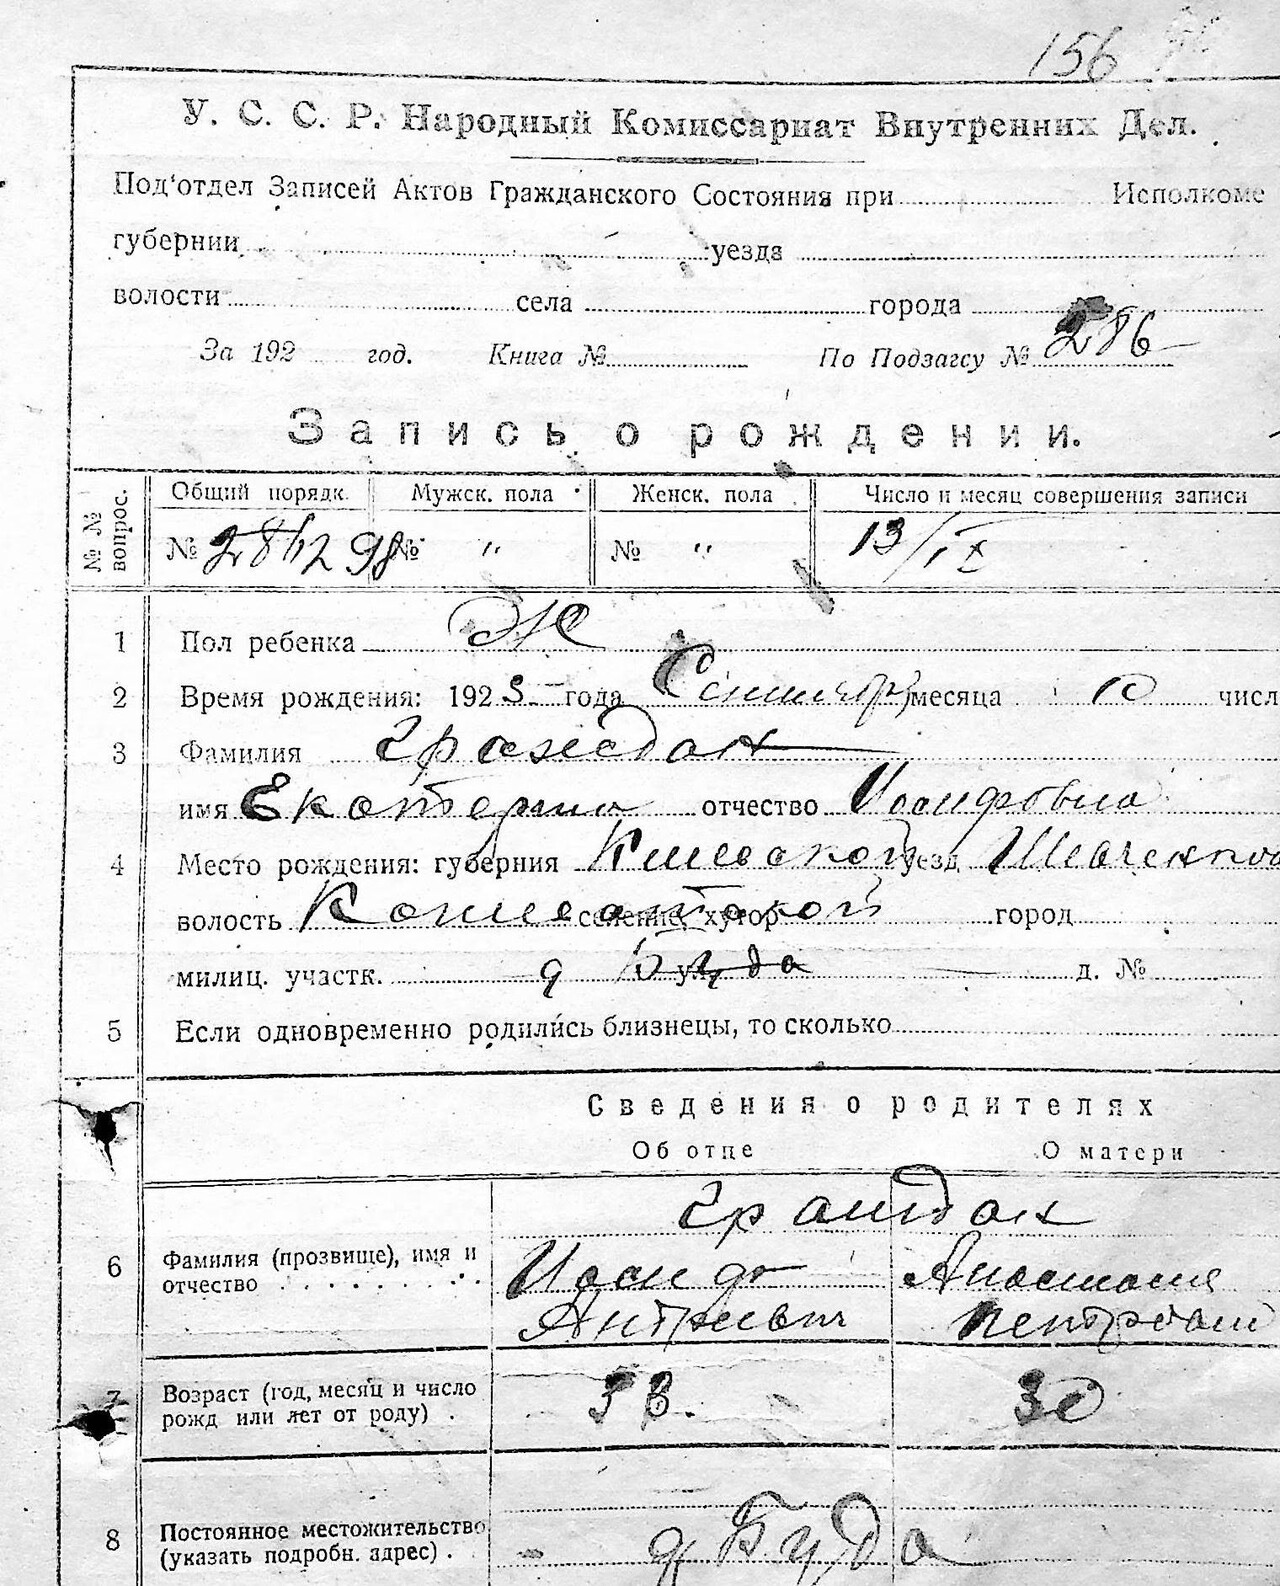 156
У. С. С. Р. Народный Комиссариат Внутренних Дел.
Под'отдел Записей Актов Гражданского Состояния при Исполкоме
губернии уезда
волости села города
За 192 год. Книга № По Подзагсу № 286
Запись о рождении.
№ № вопрос. Общий порядк. Мужск. пола Женск. пола Число и месяц совершения записи
№ 298 № " № " 13/IX
1 Пол ребенка Ж
2 Время рождения: 1923 года месяца 10 числ
3 Фамилия Граждан
имя Екатерина отчество Иосифовна
4 Место рождения: губерния Киевской уезд
волость селение, хутор город
милиц. участк. д Буда ул. д. №
5 Если одновременно родились близнецы, то сколько
Сведения о родителях
Об отце О матери
Граждан
6 Фамилия (прозвище), имя и отчество Иосиф Анастасия
7 Возраст (год, месяц и число рожд или лет от роду) . 30
8 Постоянное местожительство (указать подробн. адрес) . д Буда